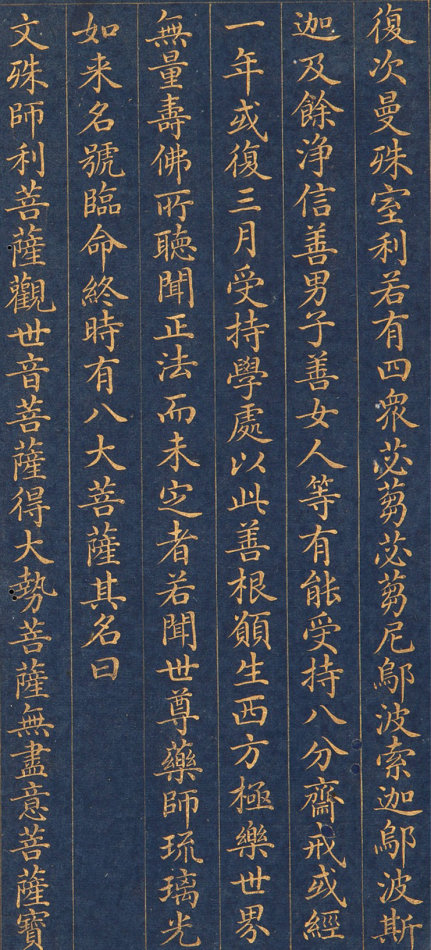 復次曼殊室利若有四衆苾蒭苾蒭尼鄔波索迦鄔波斯
迦及餘淨信善男子善女人等有能受持八分齋戒或經
一年或復三月受持學處以此善根願生西方極樂世界
無量壽佛所聽聞正法而未定者若聞世尊藥師琉璃光
如来名號臨命終時有八大菩薩其名曰
文殊師利菩薩觀世音菩薩得大勢菩薩無盡意菩薩寶